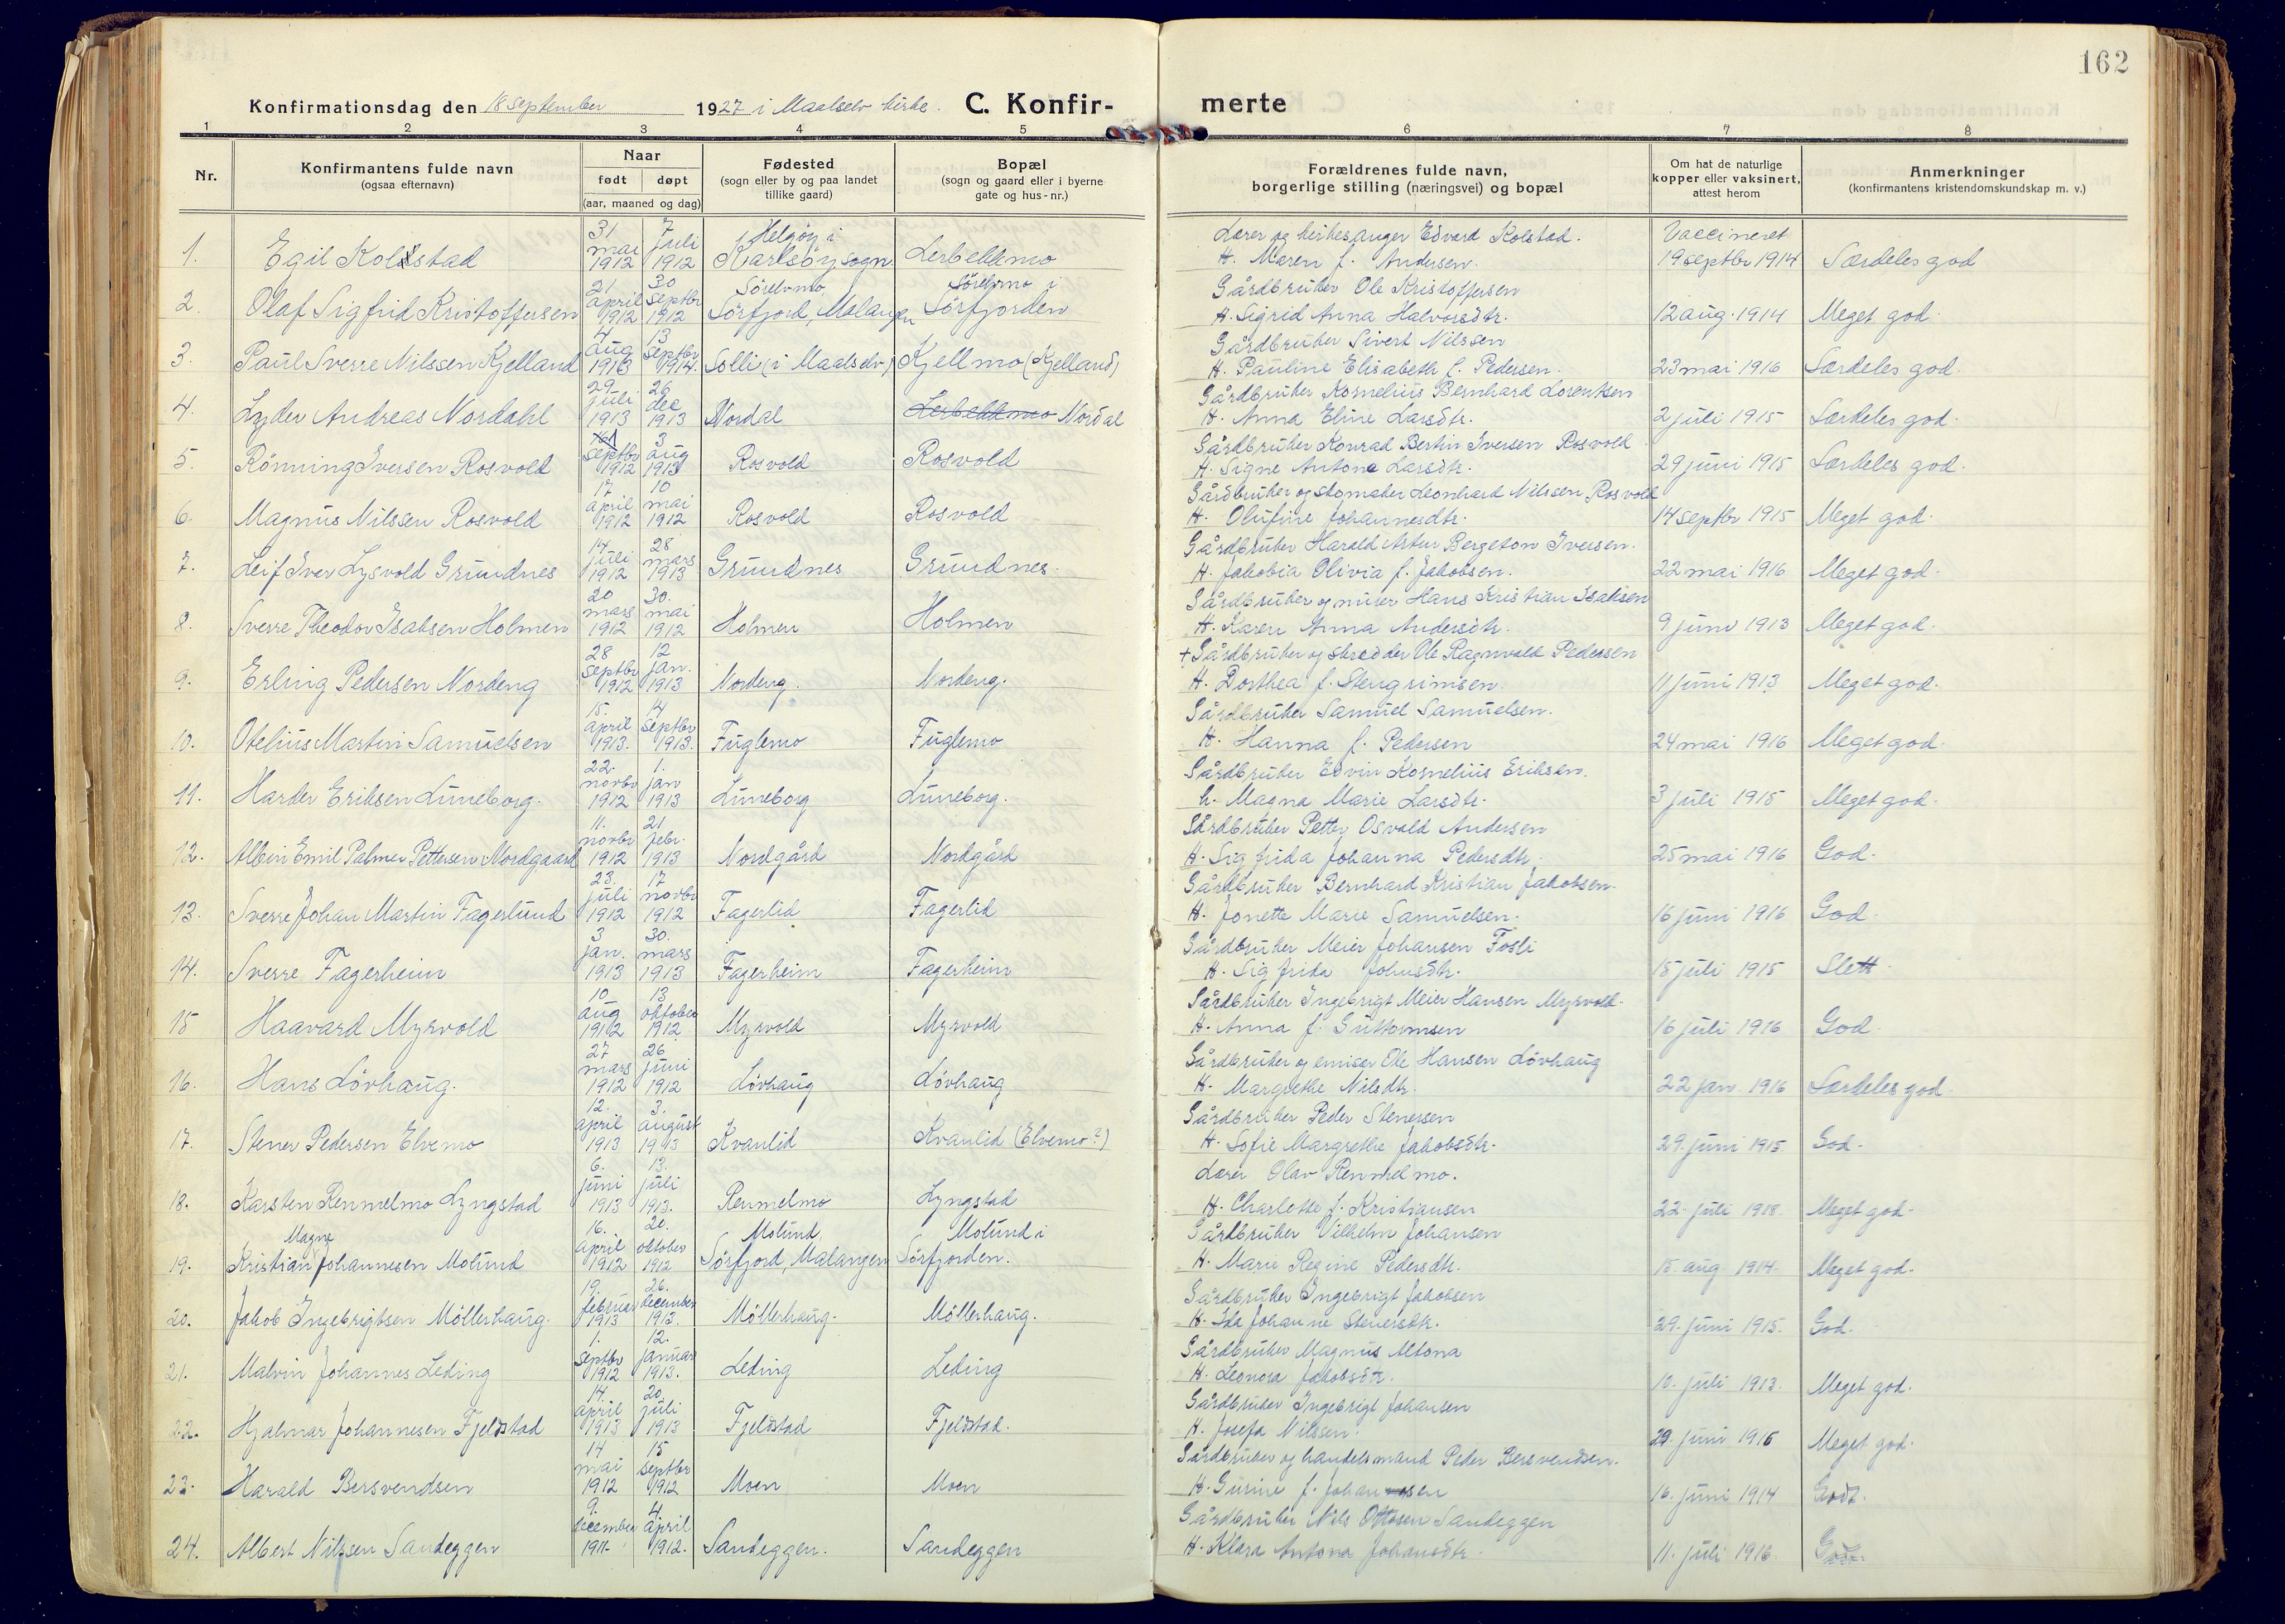 162
Konfirmationsdag den 18 september 1927 i Maalselv kirke. C. Konfir-merte
1 2 3 4 5 6 7 8
Nr.
Konfirmantens fulde navn
(ogsaa efternavn)
Naar
født døpt
(aar, maaned og dag)
Fødested
(sogn eller by og paa landet
tillike gaard)
Bopæl
(sogn og gaard eller i byerne
gate og hus-nr.)
Forældrenes fulde navn,
borgerlige stilling (næringsvei) og bopæl
Om hat de naturlige
kopper eller vaksinert,
attest herom
Anmerkninger
(konfirmantens kristendomskundskap m. v.)
1. Egil Kolstad 31 mai 1912 7 juli 1912 Helgøy i Karlsøy sogn. Lerbekkmo Lærer og kirkesanger Edvard Kolstad. Vaccineret
H. Maren f. Andersen. 19 septbr 1914 Særdeles god
2. Olaf Sigfrid Kristoffersen 21 april 1912 30 septbr 1912 Sörelvmo Sörfjord, Malangen Sörelvmo i Sörfjorden Gårdbruker Ole Kristoffersen
H. Sigrid Anna Halvorsdtr. 12 aug. 1914 Meget god
3. Paul Sverre Nilssen Kjelland 4 aug 1913 13 septbr 1914. Solli (i Maalselv) Kjellmo (Kjelland) Gårdbruker Sivert Nilssen
H. Pauline Elisabeth f. Pedersen. 23 mai 1916 Særdeles god.
4. Lyder Andreas Nordahl 29 juli 1913 26 dec 1913 Nordal Lerbekkmo Nordal Gårdbruker Kornelius Bernhard Lorentsen
H. Anna Eline Larsdtr. 2 juli 1915 Særdeles god.
5. Rönning Iversen Rosvold septbr 1912 3 aug 1913 Rosvold Rosvold Gårdbruker Konrad Bertin Iversen Rosvold
H. Signe Antone Larsdtr. 29 juni 1915 Særdeles god.
6. Magnus Nilssen Rosvold 17 april 1912 10 mai 1912 Rosvold Rosvold Gårdbruker og skomaker Leonhard Nilssen Rosvold
H. Olufine Johannesdtr. 14 septbr 1915 Meget god.
7. Leif Iver Lysvold Grundnes 14 juli 1912 28 mars 1913 Grundnes Grundnes. Gårdbruker Harald Artur Bergeton Iversen.
H. Jakobia Olivia f. Jakobsen. 22 mai 1916 Meget god.
8. Sverre Theodor Isaksen Holmen 20 mars 1912 30. mai 1912 Holmen Holmen Gårdbruker og murer Hans Kristian Isaksen
H. Karen Anna Andersdtr. 9 juni 1913 Meget god.
9. Erling Pedersen Nordeng 28 septbr 1912 12 jan. 1913 Nordeng. Nordeng. + Gårdbruker og skredder Ole Ragnvald Pedersen
H. Dorthea f. Stengrimsen. 11 juni 1913 Meget god.
10. Otelius Martin Samuelsen 15. april 1913. 14 septbr 1913. Fuglemo Fuglemo Gårdbruker Samuel Samuelsen.
H. Hanna f. Pedersen 24 mai 1916 Meget god.
11. Harder Eriksen Luneborg. 22. novbr 1912 1. jan 1913 Luneborg Luneborg. Gårdbruker Edvin Kornelius Eriksen.
h. Magna Marie Larsdtr. 3 juli 1915 Meget god.
12. Albin Emil Palmer Pettersen Nordgaard 11. novbr 1912 21 febr. 1913 Nordgård Nordgård Gårdbruker Petter Osvald Andersen
H. Sigfrida Johanna Pedersdtr. 25 mai 1916 God.
13. Sverre Johan Martin Fagerlund 23. juli 1912 17 novbr 1912 Fagerlid Fagerlid Gårdbruker Bernhard Kristian Jakobsen.
H. Jonette Marie Samuelsen. 16 juni 1916 God.
14. Sverre Fagerheim 3 jan. 1913 30. mars 1913 Fagerheim Fagerheim Gårdbruker Meier Johansen Fosli
H. Sigfrida Johnsdtr. 15 juli 1915 Slett.
15 Haavard Myrvold 10 aug 1912 13 oktober 1912 Myrvold Myrvold Gårdbruker Ingebrigt Meier Hansen Myrvold.
H. Anna f. Guttormsen 16 juli 1916 God.
16. Hans Lövhaug. 27 mars 1912 26 juni 1912 Lövhaug Lövhaug Gårdbruker og emisær Ole Hansen Lövhaug
H. Margrethe Nilsdtr. 22 jan. 1916 Særdeles god.
17. Stener Pedersen Elvemo 12. april 1913 3. august 1913 Kvanlid Kvanlid (Elvemo?) Gårdbruker Peder Stenersen
H. Sofie Margrethe Jakobsdtr. 29. juni 1915 God.
18. Karsten Renmelmo Lyngstad 6. juni 1913 13. juli 1913. Renmelmo Lyngstad Lærer Olav Renmelmo.
H. Charlotte f. Kristiansen 22. juli 1918. Meget god.
19. Kristian Magne Johannesen Molund 16. april 1912 20. oktober 1912 Molund Sörfjord, Malangen Molund i Sörfjorden. Gårdbruker Vilhelm Johansen
H. Marie Regine Pedersdtr. 15. aug 1914. Meget god.
20. Jakob Ingebrigtsen Möllerhaug. 19. februar 1913 26. december 1913. Möllerhaug. Möllerhaug. Gårdbruker Ingebrigt Jakobsen
H. Ida Johanne Stenersdtr. 29. juni 1915. God.
21. Malvin Johannes Leding 1. septbr 1912 12. januar 1913. Leding Leding Gårdbruker Magnus Altona
H. Leonora Jakobsdtr. 10. juli 1913. Meget god.
22. Hjalmar Johannesen Fjeldstad 14. april 1913 20. juli 1913 Fjeldstad Fjeldstad. Gårdbruker Ingebrigt Johansen
H. Josefa Nilssen. 29. juni 1915 Meget god.
23. Harald Bersvendsen 14 mai 1912 15 septbr 1912 Moen Moen Gårdbruker og handelsmand Peder Bersvendsen.
H. Gurine f. Johansen 16. juni 1914 Godt.
24. Albert Nilssen Sandeggen 9. december 1911. 4. april 1912. Sandeggen. Sandeggen Gårdbruker Nils Ottesen Sandeggen
H. Klara Antona Johansdtr. 11. juli 1916 Godt.